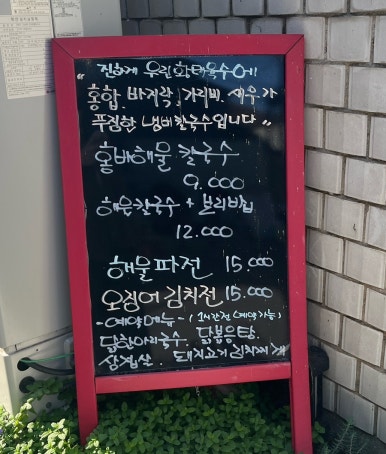 " 진하게 우린 황태육수에
홍합, 바지락, 가리비, 새우가
푸짐한 냄비칼국수입니다 "
홍바해물칼국수
9.000
해물칼국수 + 보리비빔
12.000
해물파전 15.000
오징어김치전 15.000
-예약메뉴- (1시간전 예약가능)
닭한마리국수. 닭볶음탕.
삼겹살. 돼지고기김치찌개